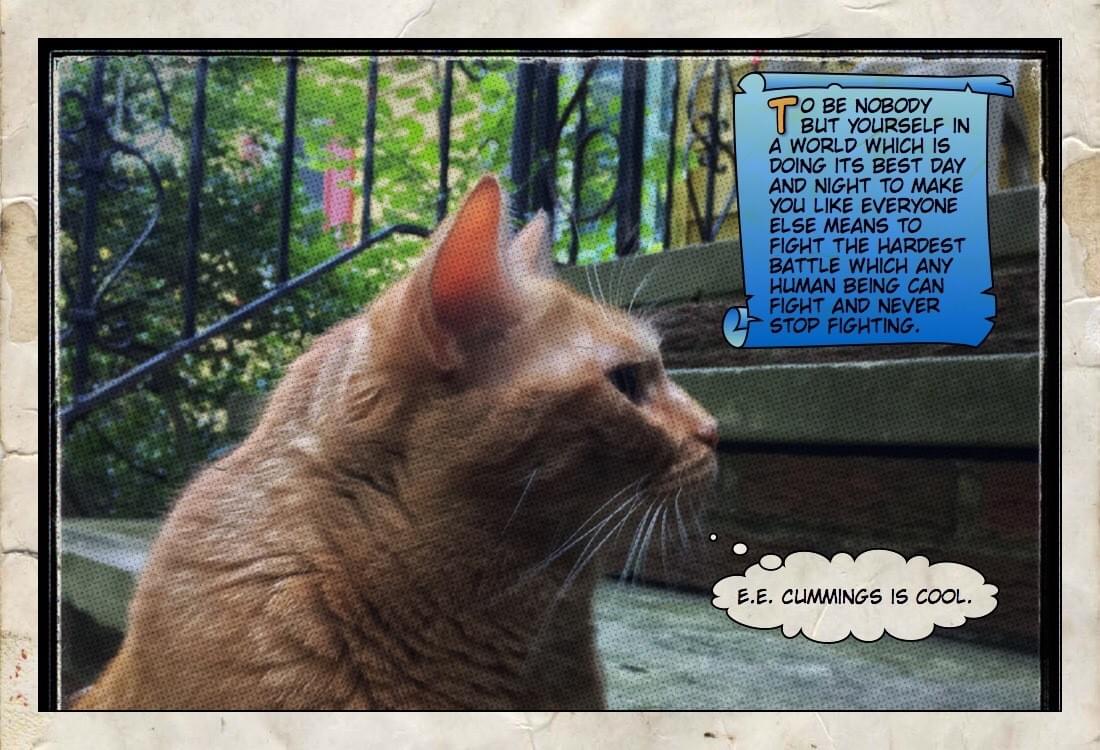 TO BE NOBODY
BUT YOURSELF IN
A WORLD WHICH IS
DOING ITS BEST DAY
AND NIGHT TO MAKE
YOU LIKE EVERYONE
ELSE MEANS TO
FIGHT THE HARDEST
BATTLE WHICH ANY
HUMAN BEING CAN
FIGHT AND NEVER
STOP FIGHTING.
E.E. CUMMINGS IS COOL.